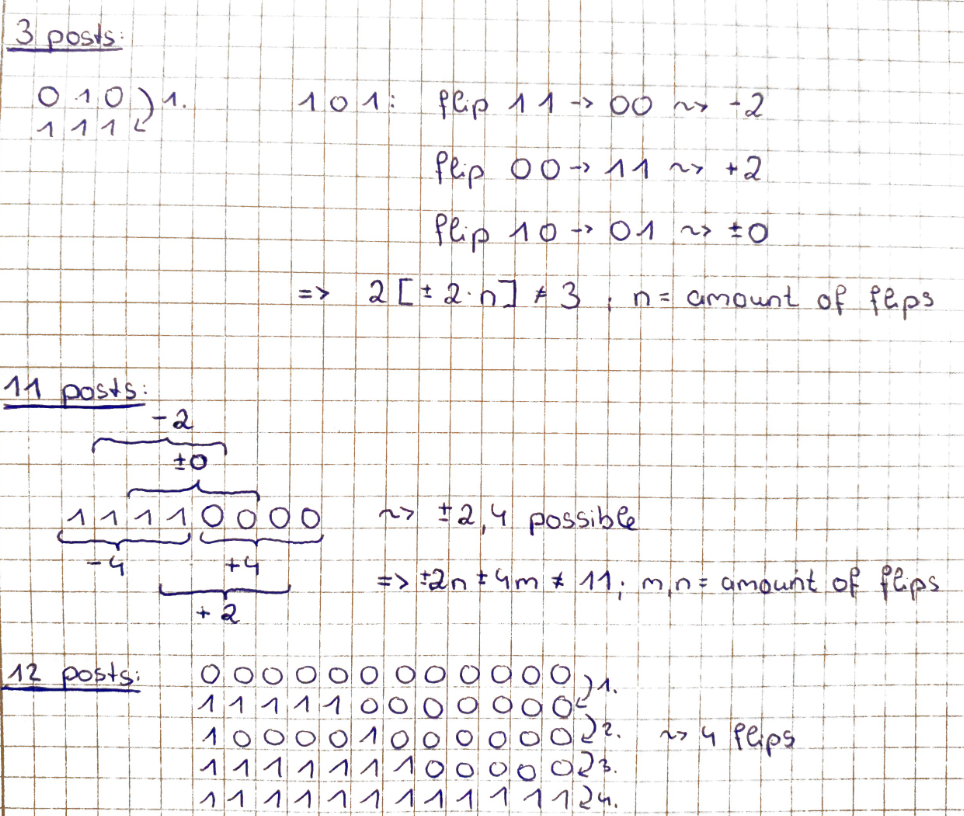 3 posts:
0 1 0 ) 1.
1 1 1
1 0 1: flip 1 1 -> 00 ~> -2
flip 00 -> 11 ~> +2
flip 10 -> 01 ~> ±0
=> 2 [± 2·n] ≠ 3 ; n = amount of flips
11 posts:
-2
±0
1 1 1 1 0 0 0 0 ~> ±2,4 possible
-4 +4
=> ±2n ± 4m ≠ 11; m,n = amount of flips
+2
12 posts: 0 0 0 0 0 0 0 0 0 0 0 0
1.
1 1 1 1 1 0 0 0 0 0 0 0
1 0 0 0 0 1 0 0 0 0 0 0 2. ~> 4 flips
1 1 1 1 1 1 1 0 0 0 0 0 3.
1 1 1 1 1 1 1 1 1 1 1 1 4.